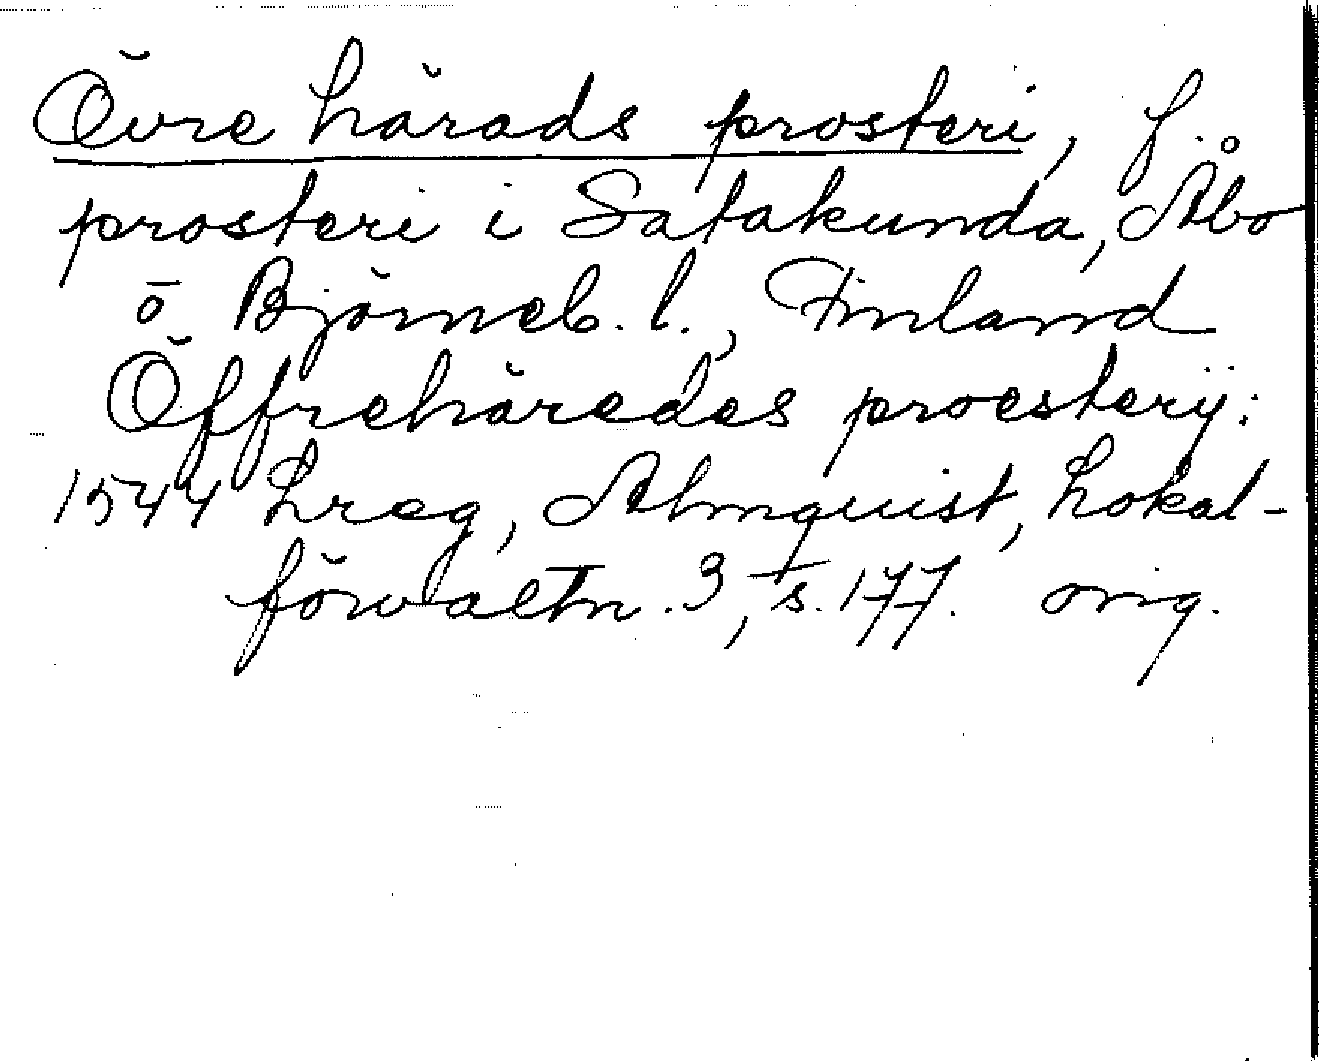 Övre härads prosteri, f.
prosteri i Satakunda, Åbo
o Björneb. l., Finland
Öffrehäredes proesterÿ:
1544 Lreg, Almquist, Lokal-
förvaltn. 3, s. 177. orig.